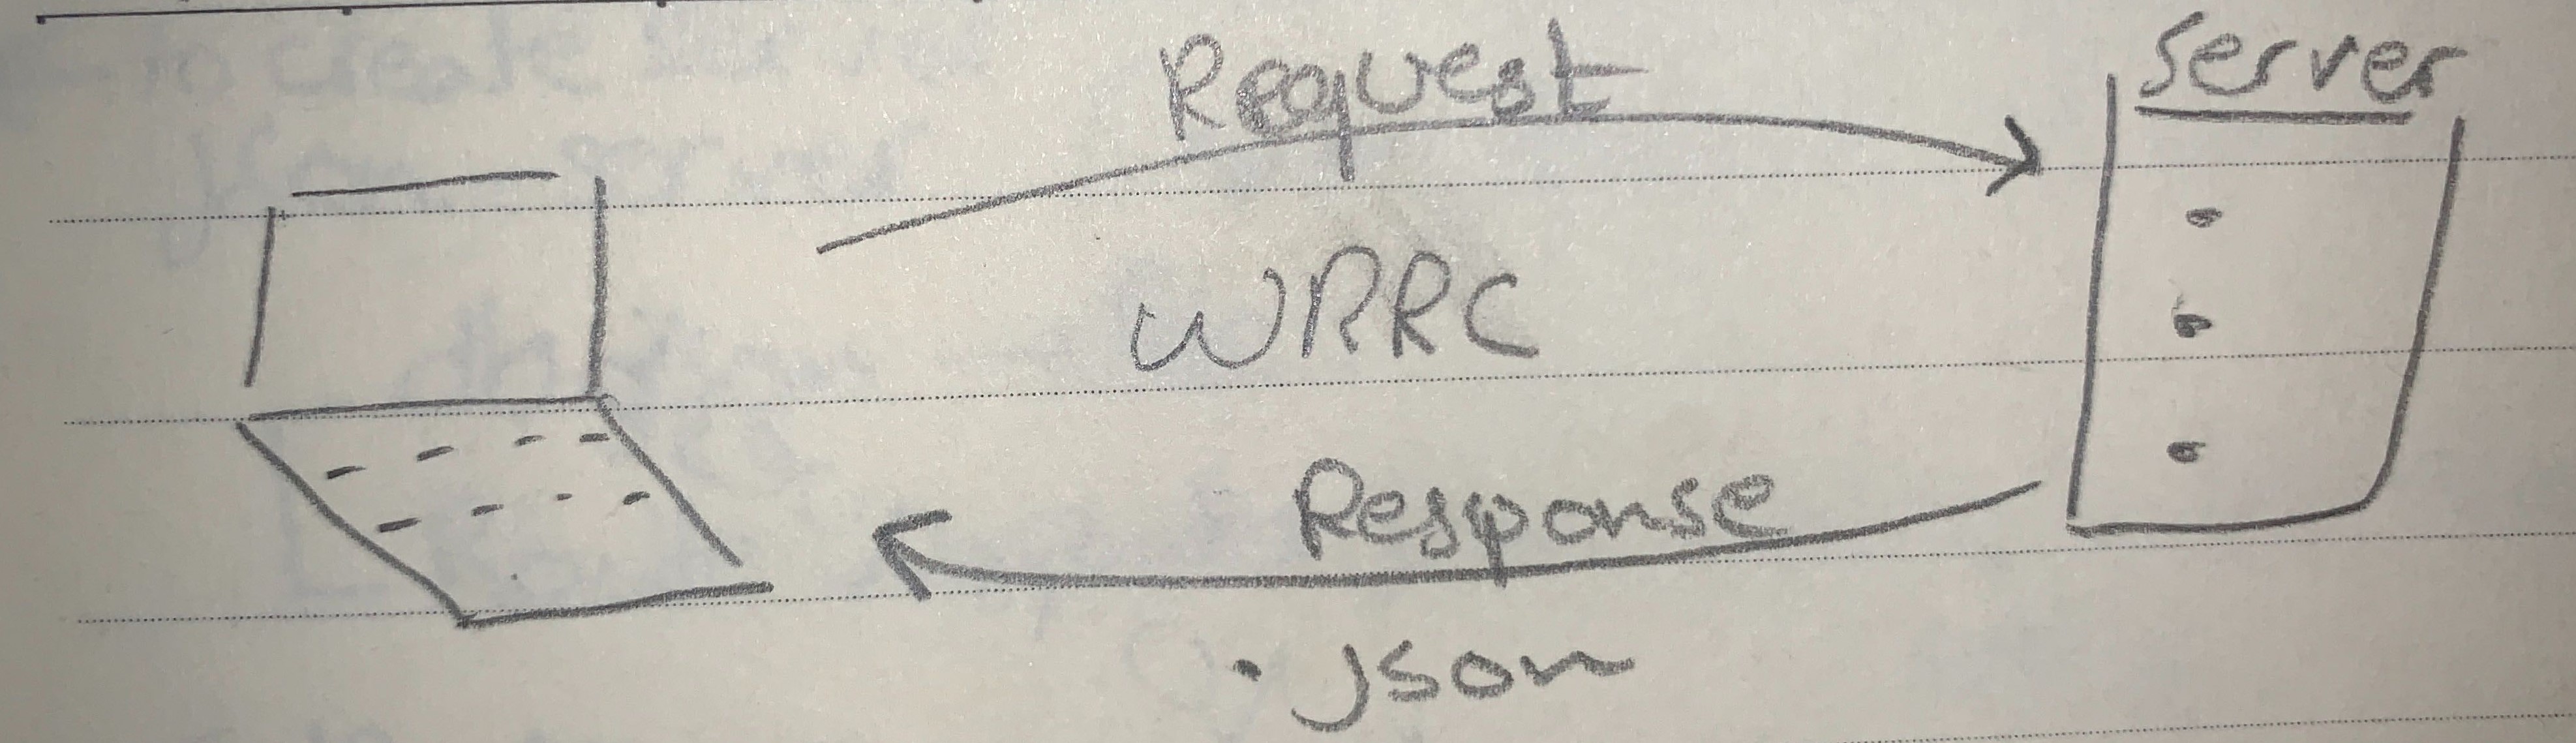 Request
server
WRRC
Response
. json